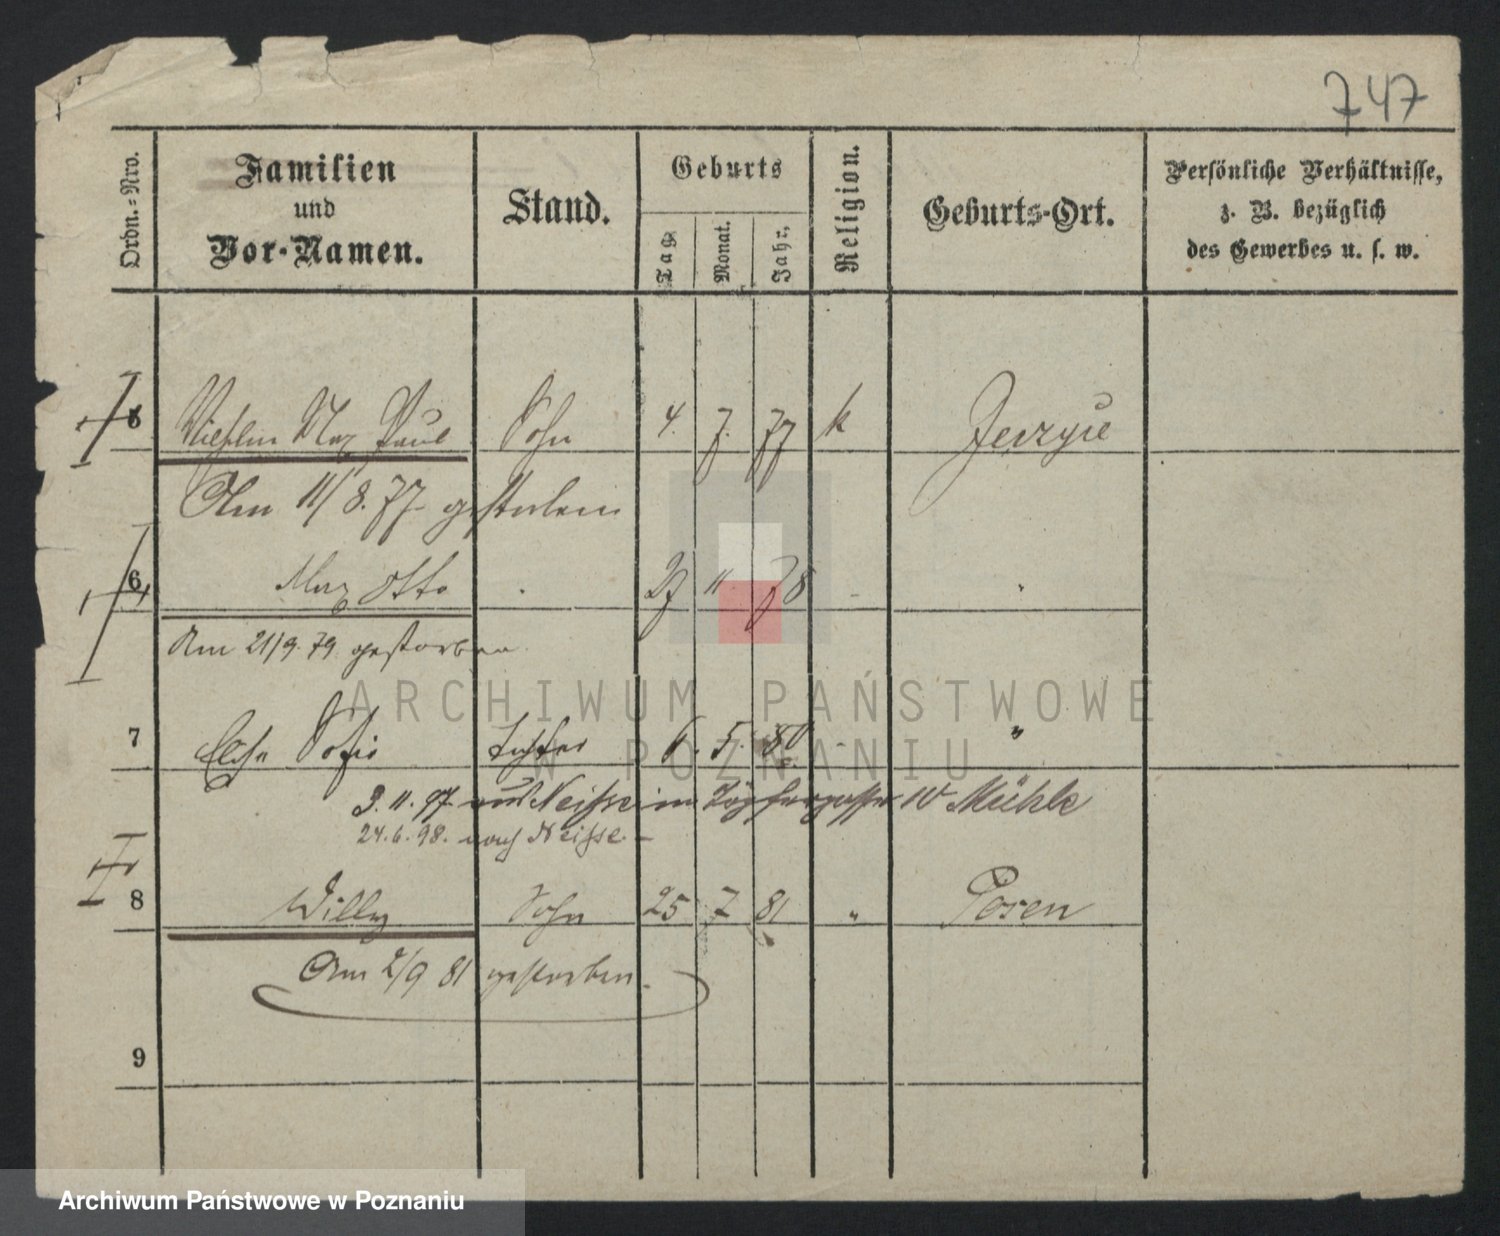 747
Ordn.-Nro.
Familien
und
Vor-Namen.
Stand.
Geburts
Tag
Monat.
Jahr.
Religion.
Geburts-Ort.
Persönliche Verhältnisse,
z. B. bezüglich
des Gewerbes u. s. w.
5 Max Paul Sohn 4. 7. 77 k
Am 11/8. 77 gestorben
6 Max Otto 27 11 78 "
Am 21/9. 79. gestorben
7 Sofie Tochter 6. 5. 80 "
3. 11. 97 aus Neisse in 10 Mühle
24. 6. 98. nach Neisse. –
8 Willy Sohn 25 7 81 " Posen
Am 2/9 81 gestorben.
9
ARCHIWUM PAŃSTWOWE
W POZNANIU
Archiwum Państwowe w Poznaniu